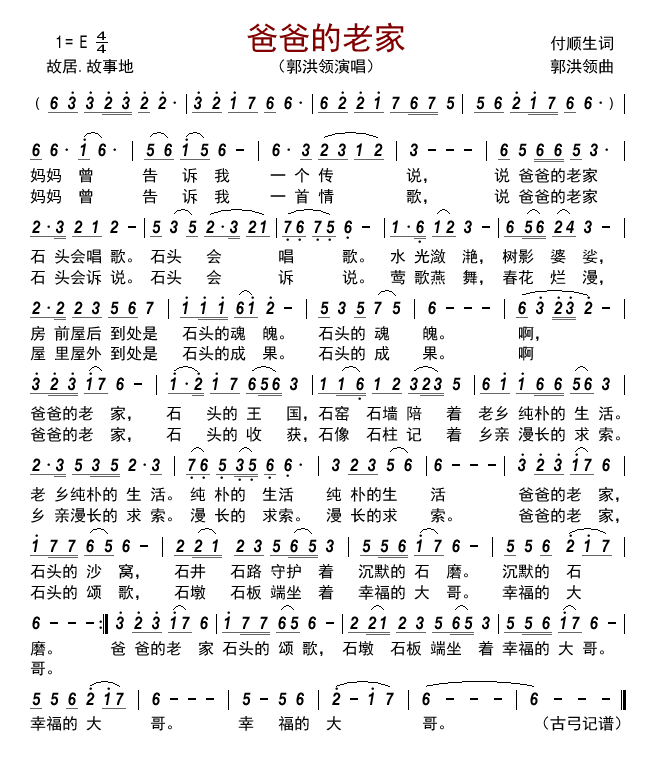 爸爸的老家
1= E 4/4
付顺生词
故居.故事地
（郭洪领演唱）
郭洪领曲
( 6 3 3 2 3 2 2· | 3 2 1 7 6 6· | 6 2 2 1 7 6 7 5 | 5 6 2 1 7 6 6· ) |
6 6· 1 6· | 5 6 1 5 6 – | 6· 3 2 3 1 2 | 3 – – – | 6 5 6 6 5 3· |
妈妈 曾 告 诉 我 一 个 传 说， 说 爸爸的老家
妈妈 曾 告 诉 我 一 首 情 歌， 说 爸爸的老家
2·3 2 1 2 – | 5 3 5 2·3 2 1 | 7 6 7 5 6 – | 1·6 1 2 3 – | 6 5 6 2 4 3 – |
石 头会唱 歌。 石头 会 唱 歌。 水 光潋 滟， 树影 婆 娑，
石 头会诉 说。 石头 会 诉 说。 莺 歌燕 舞， 春花 烂 漫，
2·2 2 3 5 6 7 | 1 1 1 6 1 2 – | 5 3 5 7 5 | 6 – – – | 6 3 2 3 2 – |
房 前屋后 到处是 石头的魂 魄。 石头的 魂 魄。 啊，
屋 里屋外 到处是 石头的成 果。 石头的 成 果。 啊
3 2 3 1 7 6 – | 1·2 1 7 6 5 6 3 | 1 1 6 1 2 3 2 3 5 | 6 1 1 6 6 5 6 3 |
爸爸的老 家， 石 头的 王 国，石窑 石墙 陪 着 老乡 纯朴的 生 活。
爸爸的老 家， 石 头的 收 获，石像 石柱 记 着 乡亲 漫长的 求 索。
2·3 5 3 5 2·3 | 7 6 5 3 5 6 6· | 3 2 3 5 6 | 6 – – – | 3 2 3 1 7 6 |
老 乡纯朴的 生 活。 纯 朴的 生活 纯 朴的生 活 爸爸的老 家，
乡 亲漫长的 求 索。 漫 长的 求索。 漫 长的求 索。 爸爸的老 家，
1 7 7 6 5 6 – | 2 2 1 2 3 5 6 5 3 | 5 5 6 1 7 6 – | 5 5 6 2 1 7 |
石头的 沙 窝， 石井 石路 守护 着 沉默的 石 磨。 沉默的 石
石头的 颂 歌， 石墩 石板 端坐 着 幸福的 大 哥。 幸福的 大
6 – – – :‖ 3 2 3 1 7 6 | 1 7 7 6 5 6 – | 2 2 1 2 3 5 6 5 3 | 5 5 6 1 7 6 – |
磨。 爸 爸的老 家 石头的 颂 歌， 石墩 石板 端坐 着 幸福的 大 哥。
哥。
5 5 6 2 1 7 | 6 – – – | 5 5 6 6 | 2 – 1 7 | 6 – – – | 6 – – – ‖
幸福的 大 哥。 幸 福的 大 哥。 （古弓记谱）